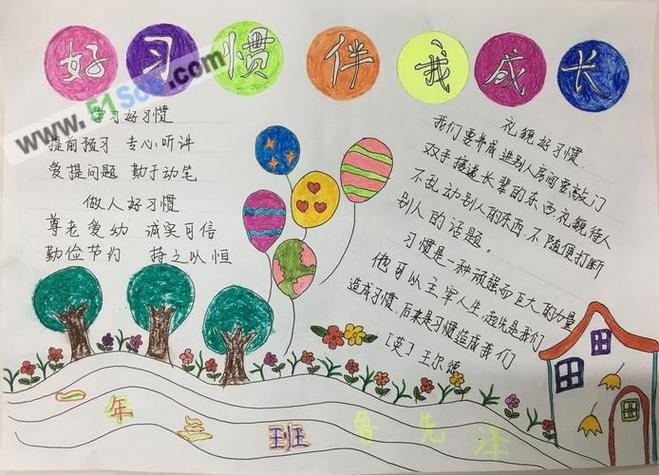 好习惯伴我成长
学习好习惯
提前预习 专心听讲
爱提问题 勤于动笔
做人好习惯
尊老爱幼 诚实可信
勤俭节约 持之以恒
礼貌好习惯
我们要养成进别人房间要敲门
双手接递长辈的东西,礼貌待人
不乱动别人的东西,不随便打断
别人的话题.
习惯是一种顽强而巨大的力量
他可以主宰人生,起先是我们
造成习惯,后来是习惯造成我们
[英]王尔德
一年三班 鲁先泽